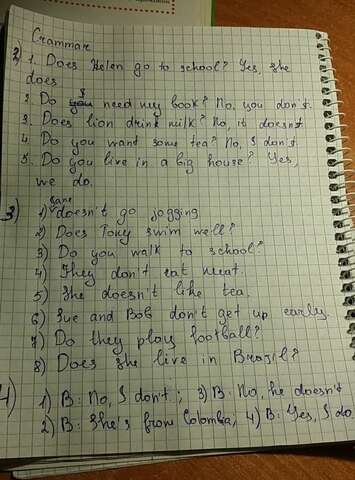 Grammar
2) 1. Does Helen go to school? Yes, she
does
2. Do I need my book? No, you don't.
3. Does lion drink milk? No, it doesn't
4. Do you want some tea? No, I don't.
5. Do you live in a big house? Yes,
we do.
3) 1) Jane doesn't go jogging
2) Does Tony swim well?
3) Do you walk to school?
4) They don't eat meat.
5) She doesn't like tea.
6) Sue and Bob don't get up early.
7) Do they play football?
8) Does she live in Brazil?
4) 1) B: No, I don't; 3) B: No, he doesn't
2) B: She's from Colombia, 4) B: Yes, I do.